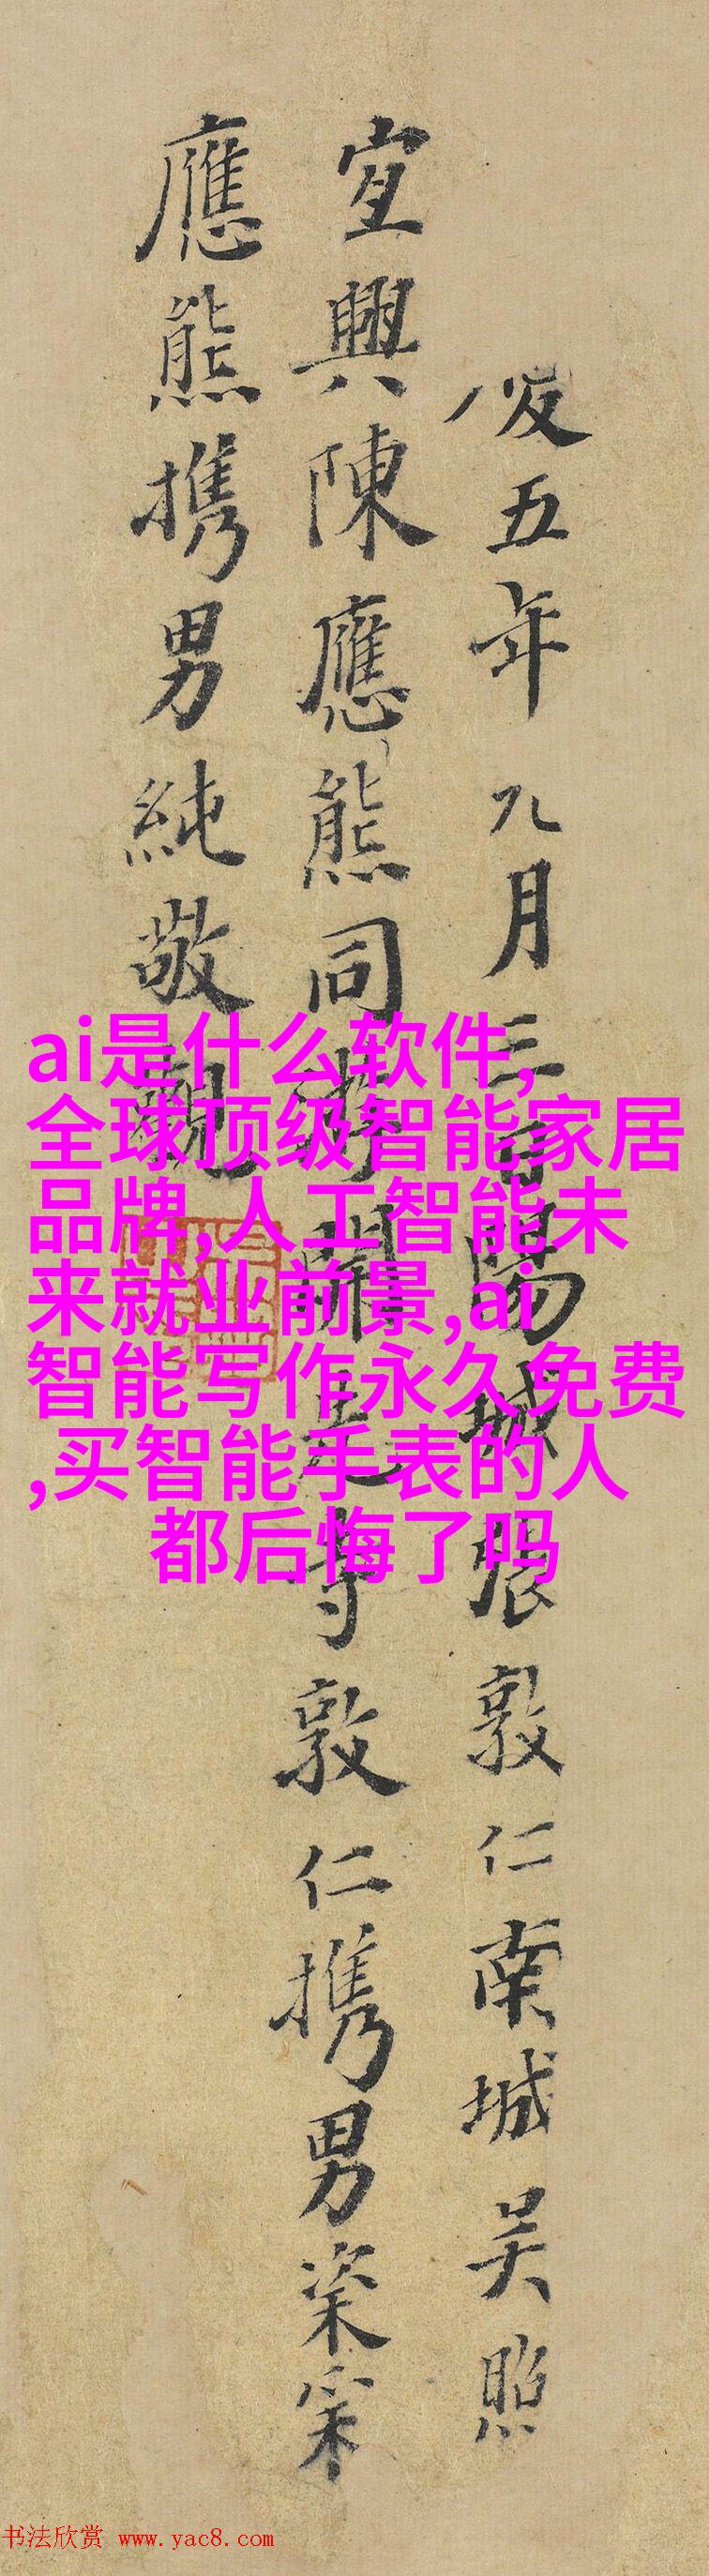 五年九月三日陽城張敦仁南城吳照
宜興陳應熊同游開元寺敦仁携男
應熊携男純敬觀
ai是什么软件,
全球顶级智能家居
品牌,人工智能未
来就业前景,ai
智能写作永久免费
,买智能手表的人
都后悔了吗
书法欣赏 www.yac8.com